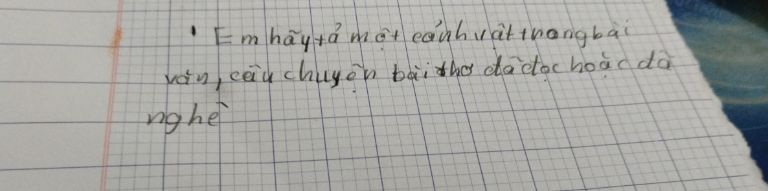 Em hãy tả một cảnh vật trong bài
văn, câu chuyện bài thơ đã đọc hoặc đã
nghe